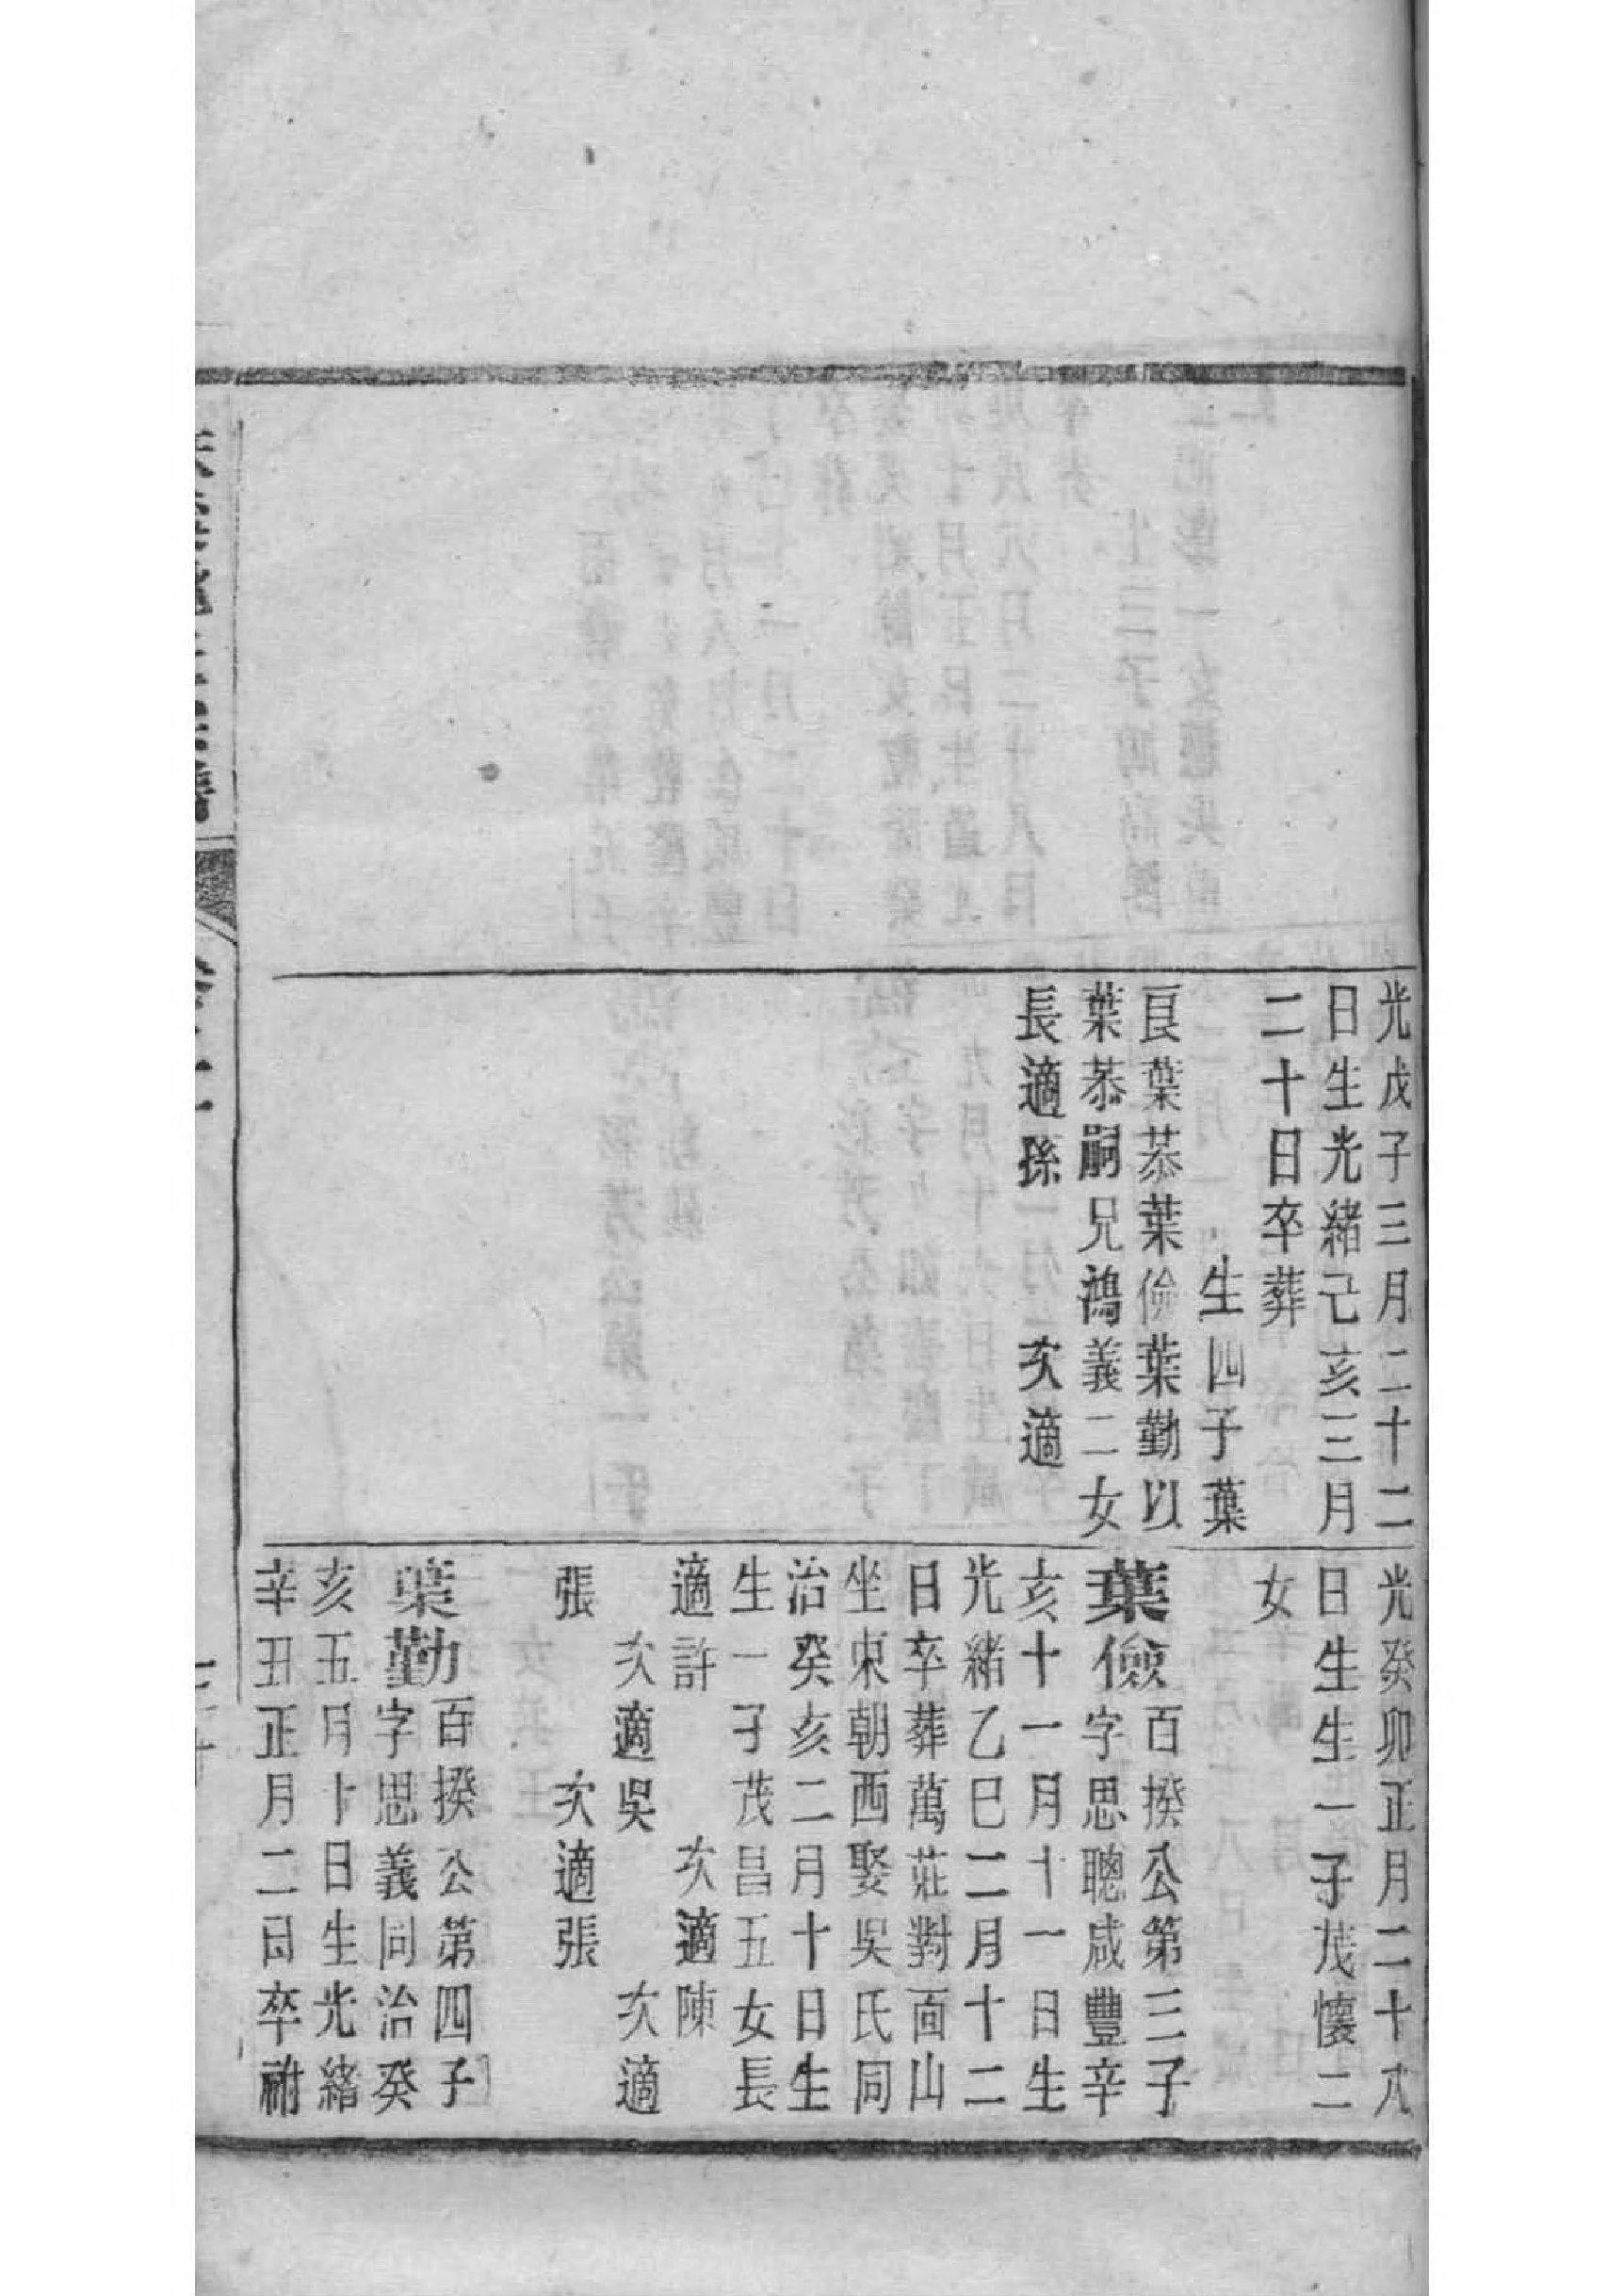 光戊子三月二十二
日生光緒己亥三月
二十日卒葬
生四子葉
良葉恭葉儉葉勤以
葉恭嗣兄鴻義二女
長適孫　次適
光癸卯正月二十八
日生生一子茂懷二
女
葉儉百揆公第三子
字思聰咸豐辛
亥十一月十一日生
光緒乙巳二月十二
日卒葬萬莊對面山
坐東朝西娶吳氏同
治癸亥二月十日生
生一子茂昌五女長
適許　次適陳
次適吳　次適
張　次適張
葉勤百揆公第四子
字思義同治癸
亥五月十日生光緒
辛丑正月二日卒祔